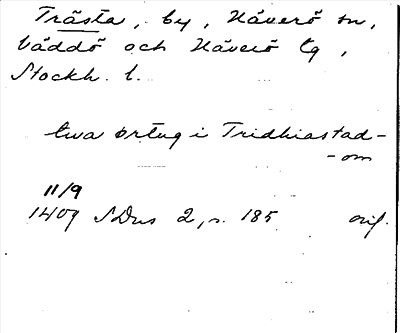 Trästa, by, Häverö sn,
Väddö och Häverö tg,
Stockh. l.
twa örtug i Tridhiastad-
-om
11/9
1409 SDns 2, s. 185 orig.